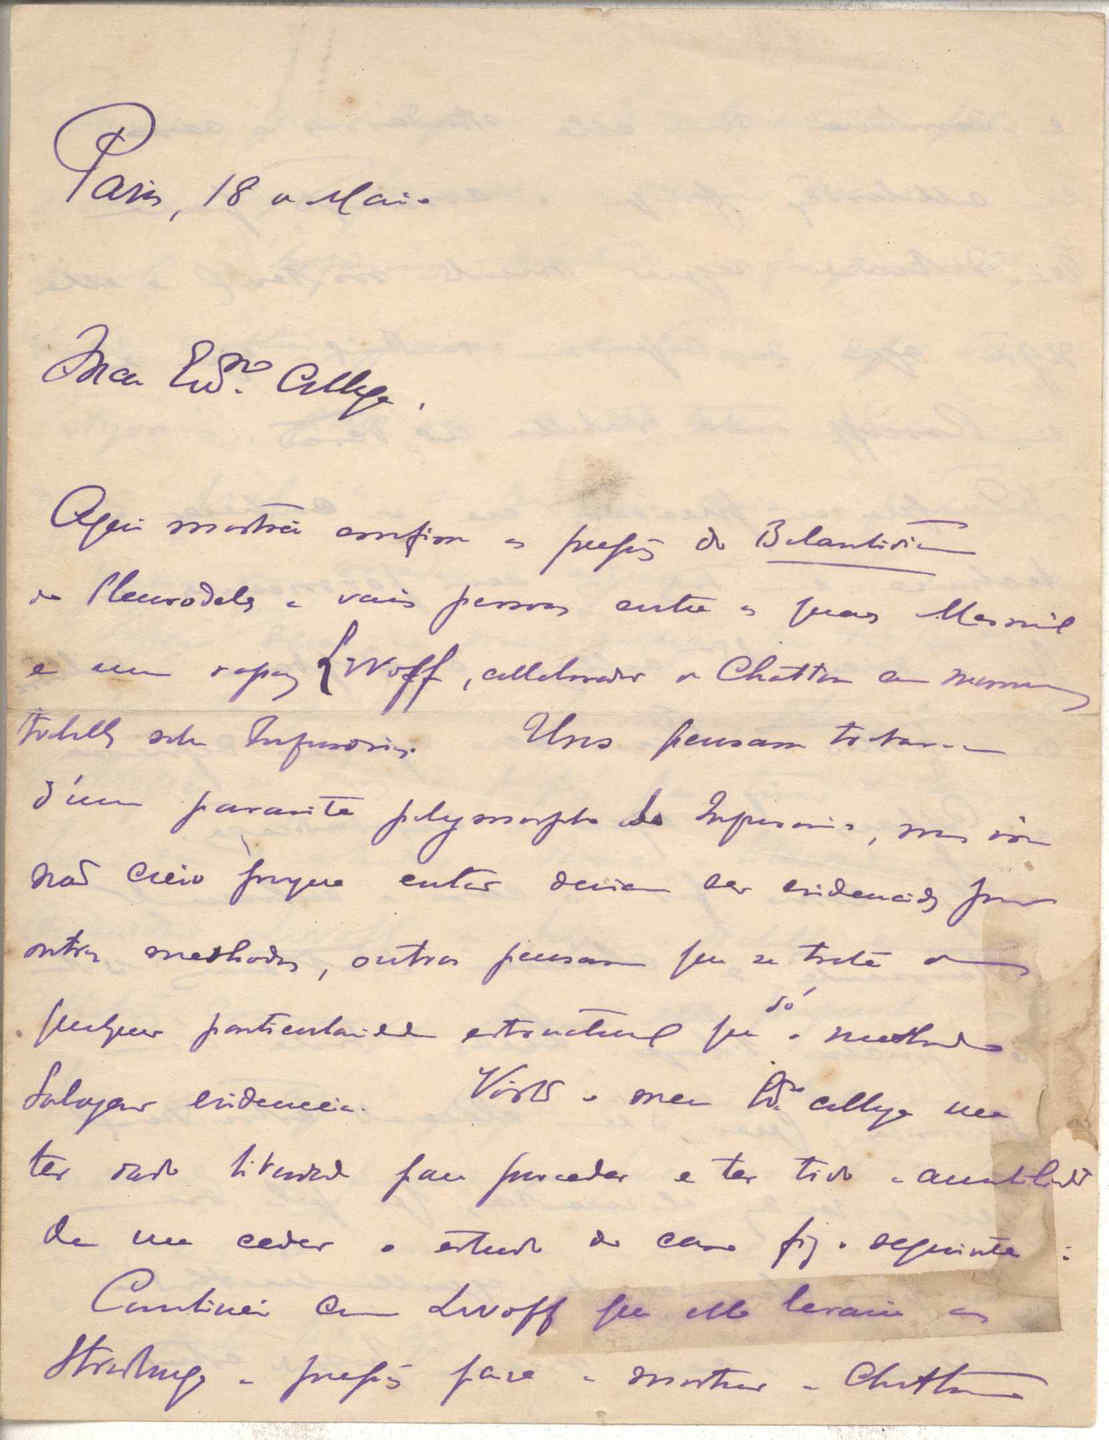 Paris, 18 de Maio
Meu Exmo. Collega.
Aqui mostrei emfim as prepões do Balantidium
do Pleurodeles a varias pessoas entre as quaes Mesnil
e um rapaz Lwoff, collaborador de Chatton em numerosos
trabalhos sobre Infusorios. Uns pensam tratar-se
d'um parasita polymorpho do Infusorio, mas isso
não creio porque então deviam ser evidenciados por
outros methodos, outros pensam que se trate de
qualquer particularidade estructural que só o methodo
evidencia. Visto o meu Exmo collega me
ter dado liberdade para proceder e ter tido a amabilidade
de me ceder o estudo do caso fiz o seguinte:
Combinei com Lwoff que elle levaria a
Strasburgo as prepões para as mostrar a Chatton